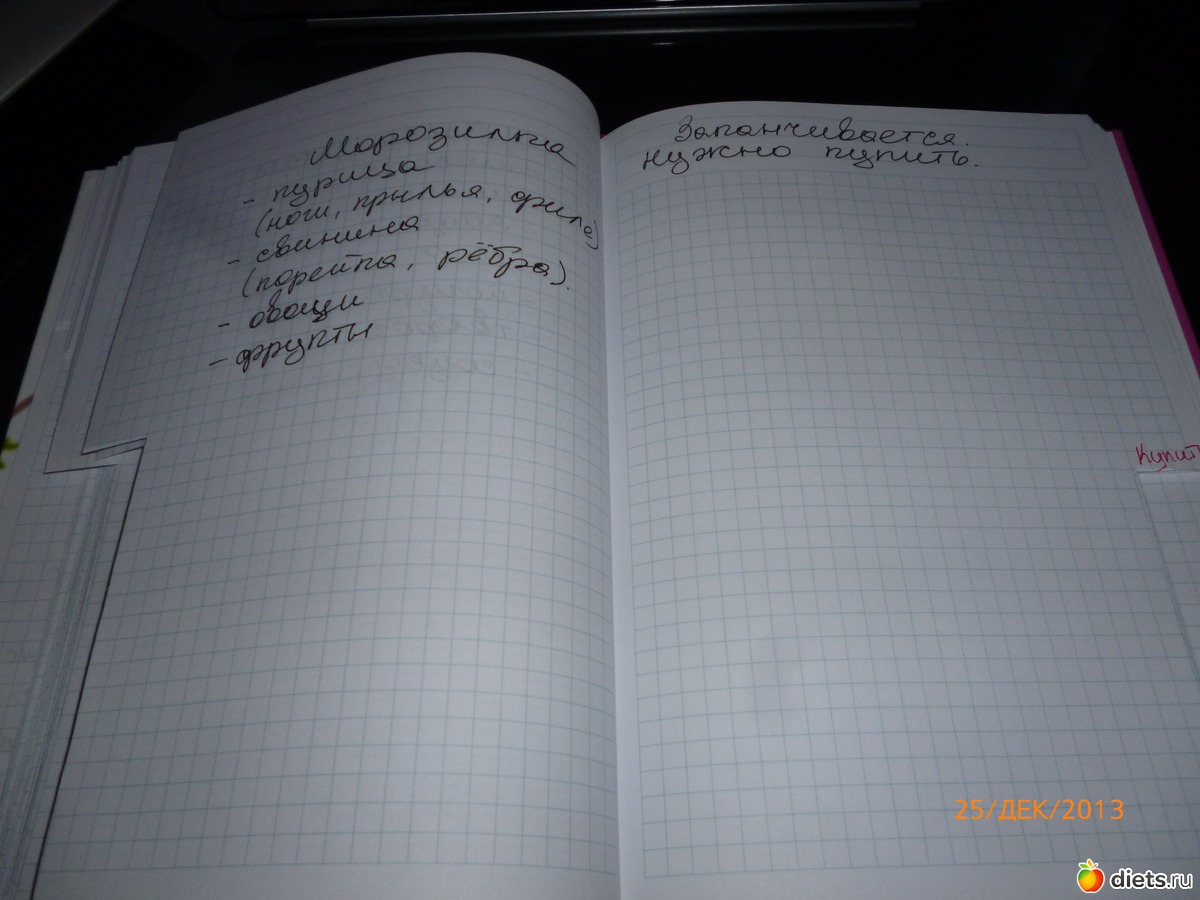 Морозилка
- курица
(ноги, крылья, филе)
- свинина
(корейка, рёбра).
- овощи
- фрукты
Заканчивается.
нужно купить.
Купить
25/ДЕК/2013
diets.ru